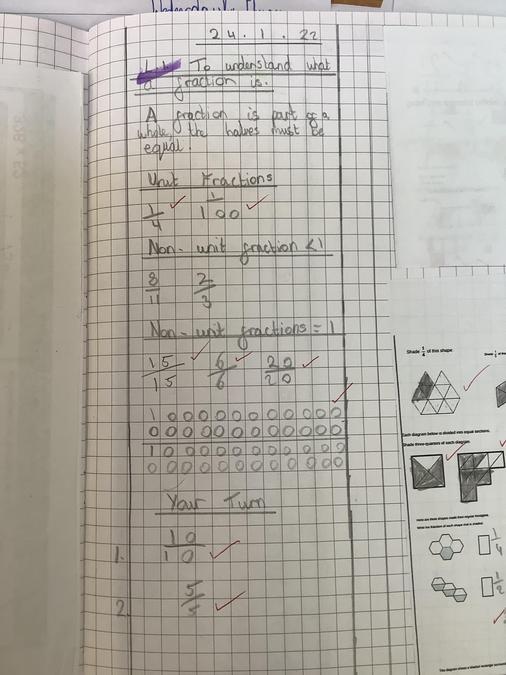 24.1.22
To understand what
a fraction is.
A fraction is part of a
whole, the halves must be
equal.
Unit Fractions
1/4 1/100
Non-unit fraction <1
8/11 2/3
Non-unit fractions = 1
15/15 6/6 20/20
1000000000000
0000000000000
1000000000000
0000000000000
Your Turn
1. 10/10
2. 5/5
Shade 1/4 of this shape.
Each diagram below is divided into equal sections.
Shade three-quarters of each diagram.
Here are three shapes made from regular hexagons.
Write the fraction of each shape that is shaded.
1/4
1/2
This diagram shows a shaded rectangle